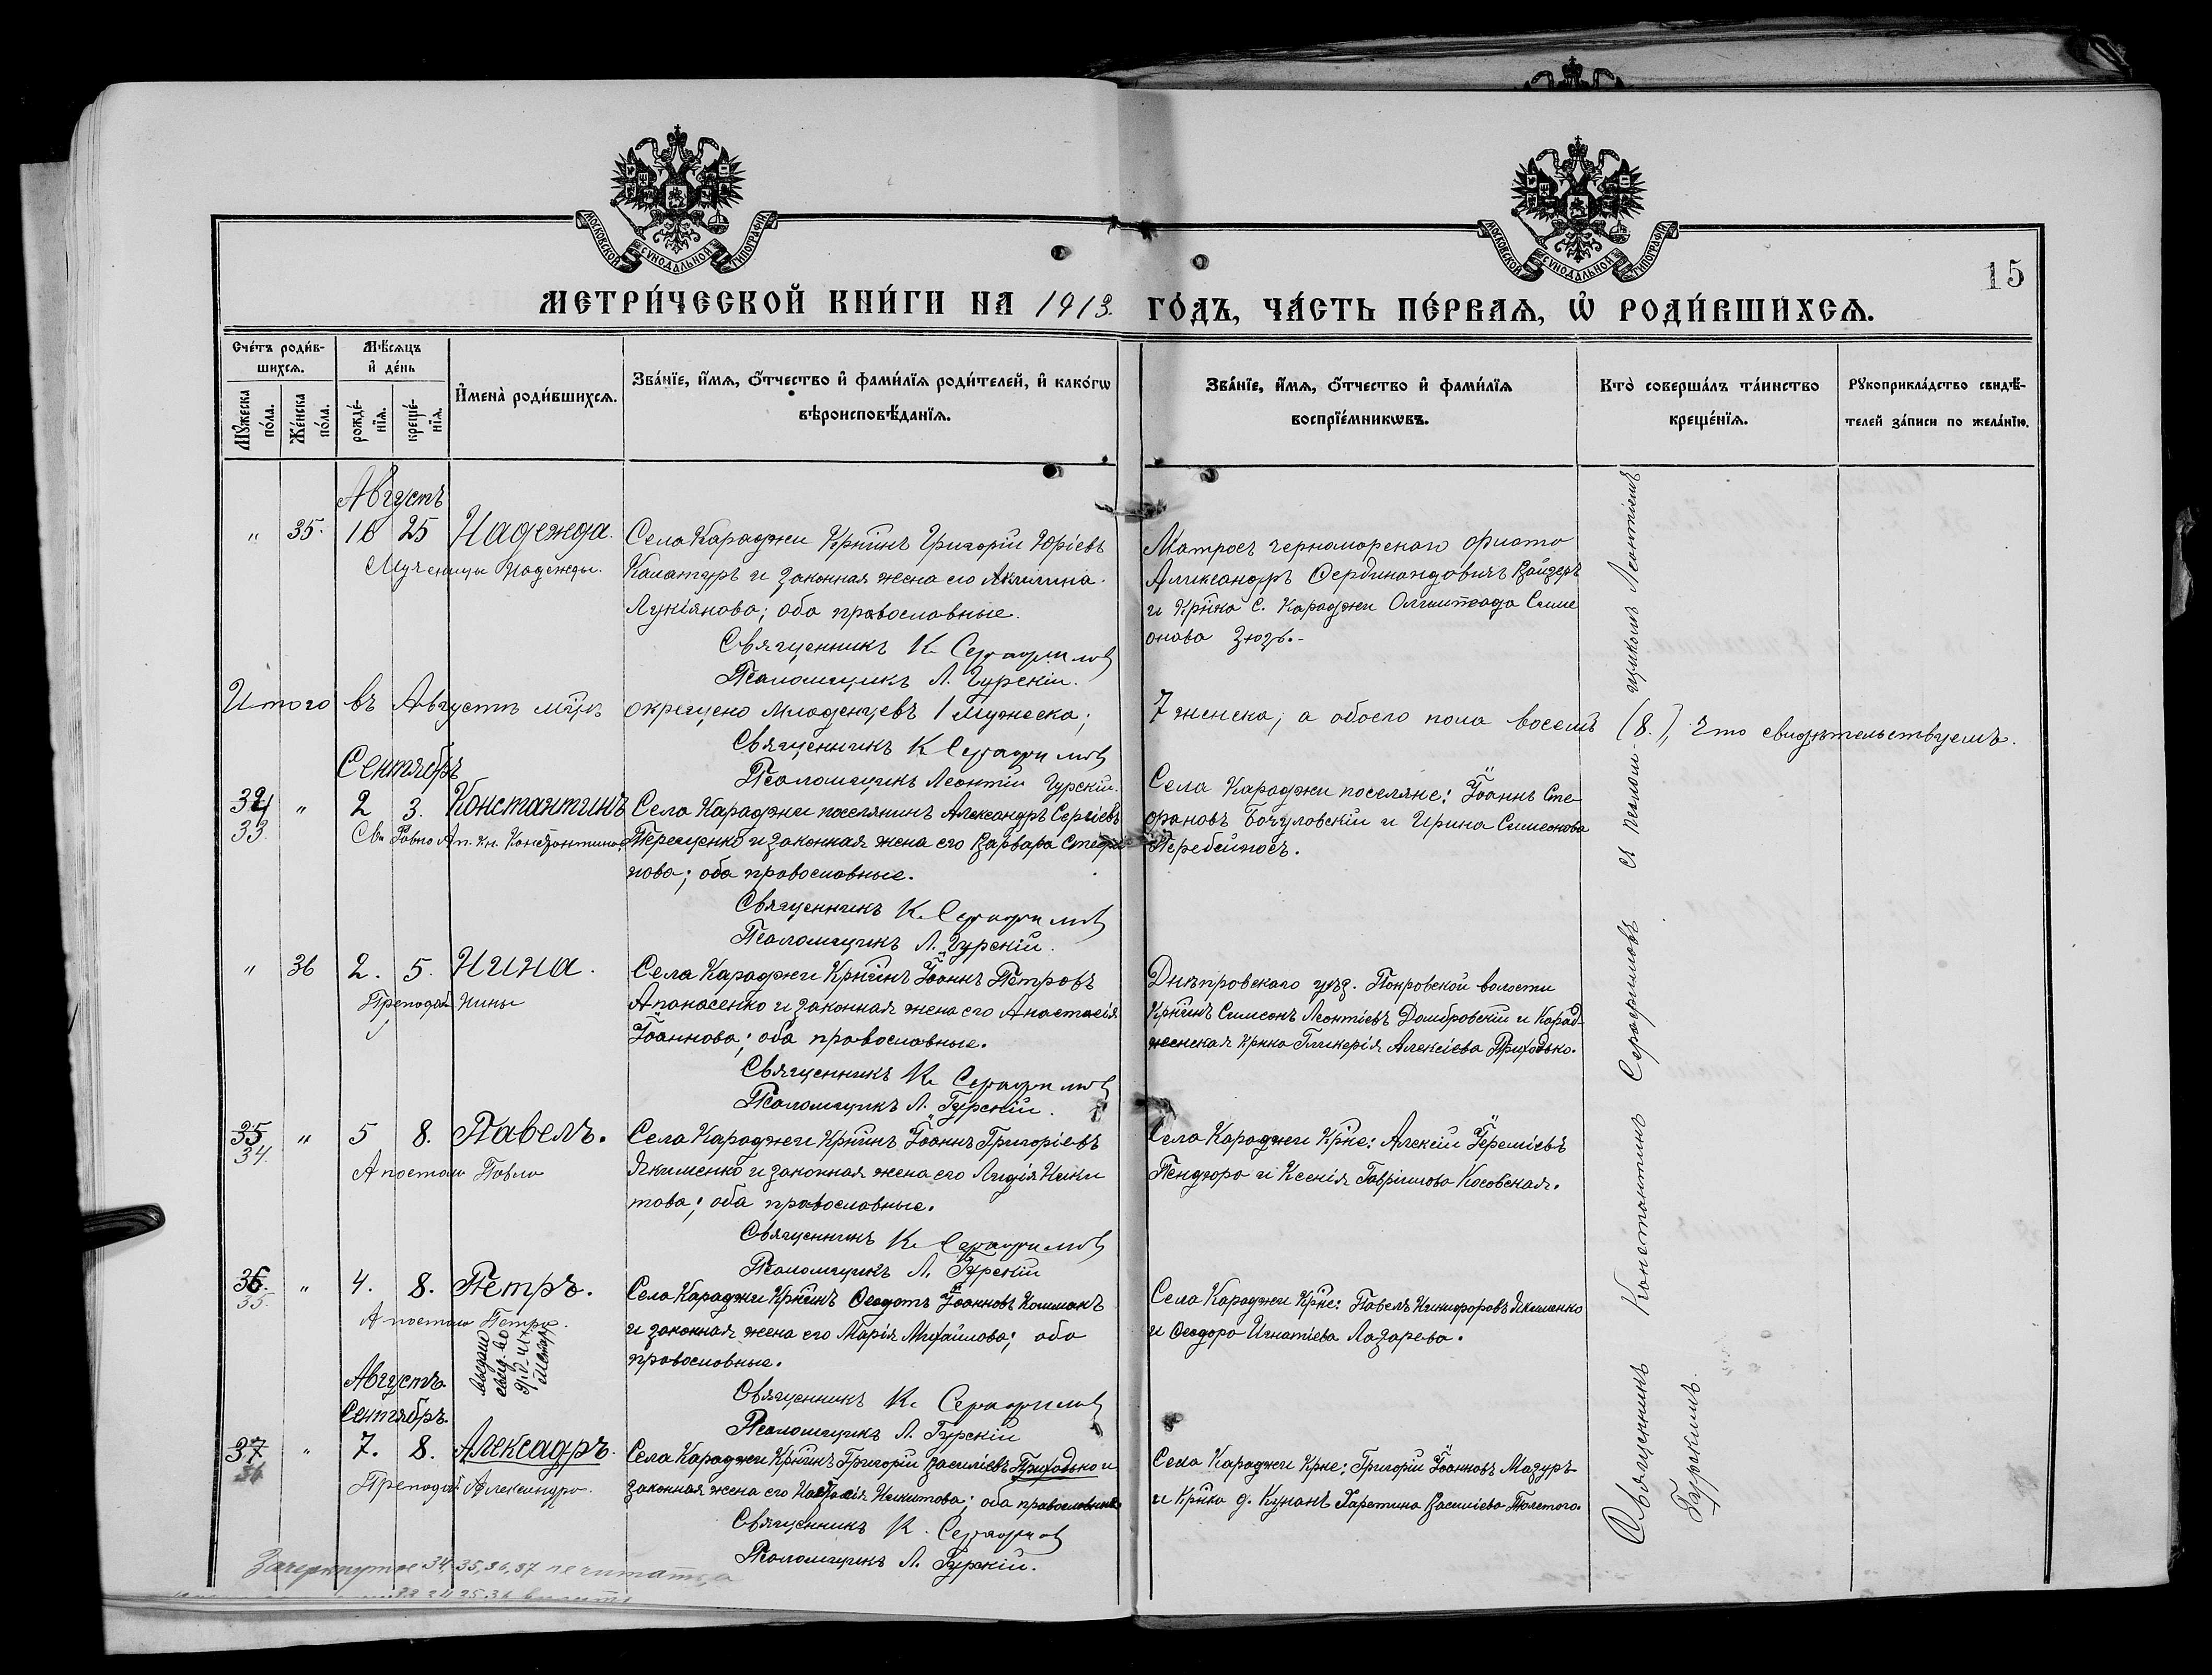 МОСКОВСКОЙ СѴНОДАЛЬНОЙ ТИПОГРАФІИ
МОСКОВСКОЙ СѴНОДАЛЬНОЙ ТИПОГРАФІИ
15
МЕТРИ́ЧЕСКОЙ КНИ́ГИ НА 1913. ГО́ДЪ, ЧА́СТЬ ПЕ́РВАѦ, Ѽ РОДИ́ВШИХСѦ.
Сче́тъ роди́в-
шихсѧ.
Мꙋ́жеска по́ла.
Же́нска по́ла.
Мѣ́сѧцъ
и҆ де́нь
рожде́-
нїѧ.
креще́-
нїѧ.
И҆мена̀ роди́вшихсѧ.
Зва́нїе, и҆́мѧ, ѻ҆́тчество и҆ фами́лїѧ роди́телей, и҆ како́гѡ
вѣроисповѣ́данїѧ.
Зва́нїе, и҆́мѧ, ѻ҆́тчество и҆ фами́лїѧ
воспрїе́мникѡвъ.
Кто̀ соверша́лъ та́инство
креще́нїѧ.
Рꙋкоприкла́дство свидѣ́-
телей за́писи по жела́нїю.
Августъ
" 35. 16 25 Надежда.
Мученицы Надежды.
Села Караджи Крнинъ Григорій Юріевъ
Калатуръ и законная жена его Акилина
Лукіянова; оба православные.
Священникъ К. Серафимовъ
Псаломщикъ Л. Гурскій.
Матросъ черноморскаго флота
Александръ Фердинандовичъ Вайзеръ
и Крнка с. Караджи Олимпіада Симе
онова Зюзь.
Итого въ Августѣ мѣсц. окрещено младенцевъ 1 мужеска; 7 женска, а обоего пола восемь (8.), что свидѣтельствуемъ.
Священникъ К. Серафимовъ
Псаломщикъ Леонтій Гурскій.
Сентябрь
34 " 2 3. Константинъ
33.
Св. Равно Ап. Кн. Константина.
Села Караджи поселянинъ Александръ Сергіевъ
Терещенко и законная жена его Варвара Стефа
нова; оба православные.
Священникъ К. Серафимовъ
Псаломщикъ Л. Гурскій.
Села Караджи поселяне: Іоаннъ Сте-
фановъ Бочуловскій и Ирина Симеонова
Перебейносъ.
" 36 2. 5. Нина.
Преподоб. Нины
Села Караджи Крнинъ Іоаннъ Петровъ
Апанасенко и законная жена его Анастасія
Іоаннова; оба православные.
Священникъ К. Серафимовъ
Псаломщикъ Л. Гурскій.
Днѣпровскаго уѣзд. Покровской волости
Крнинъ Симеонъ Леонтіевъ Домбровскій и Карад-
женская Крнка Гликерія Алексіева Приходько.
35 " 5 8. Павелъ.
34.
Апостола Павла
Села Караджи Крнинъ Іоаннъ Григоріевъ
Якименко и законная жена его Лидія Ники
това; оба православные.
Священникъ К. Серафимовъ
Псаломщикъ Л. Гурскій
Села Караджи Крне: Алексій Іереміевъ
Пендюра и Ксенія Гавріилова Косовская.
36. " 4. 8. Петръ.
35.
Апостола Петра.
выдано
Села Караджи Крнинъ Ѳеодотъ Іоанновъ Кошманъ
и законная жена его Марія Михайлова; оба
православные.
Священникъ К. Серафимовъ
Псаломщикъ Л. Гурскій
Села Караджи Крне: Павелъ Никифоровъ Якименко
и Ѳеодора Игнатіева Лазарева.
Августъ
Сентябрь.
37 " 7. 8. Алексадръ.
36
Преподоб. Александра.
Села Караджи Крнинъ Григорій Василіевъ Приходько и
законная жена его Настасія Никитова; оба православные
Священникъ К. Серафимовъ
Псаломщикъ Л. Гурскій.
Села Караджи Крне: Григорій Іоанновъ Мазуръ
и Крнка д. Кунанъ Харетина Василіева Толстого.
Священникъ Константинъ Серафимовъ съ псалом-щикомъ Леонтіемъ
Гурскимъ.
Зачеркнутое 34, 35, 36, 37 не читать, а
33 34 35 36